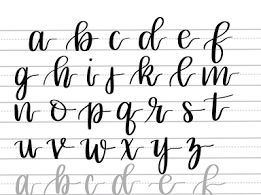 a b c d e f
g h i j k l m
n o p q r s t
u v w x y z
a b c d e f